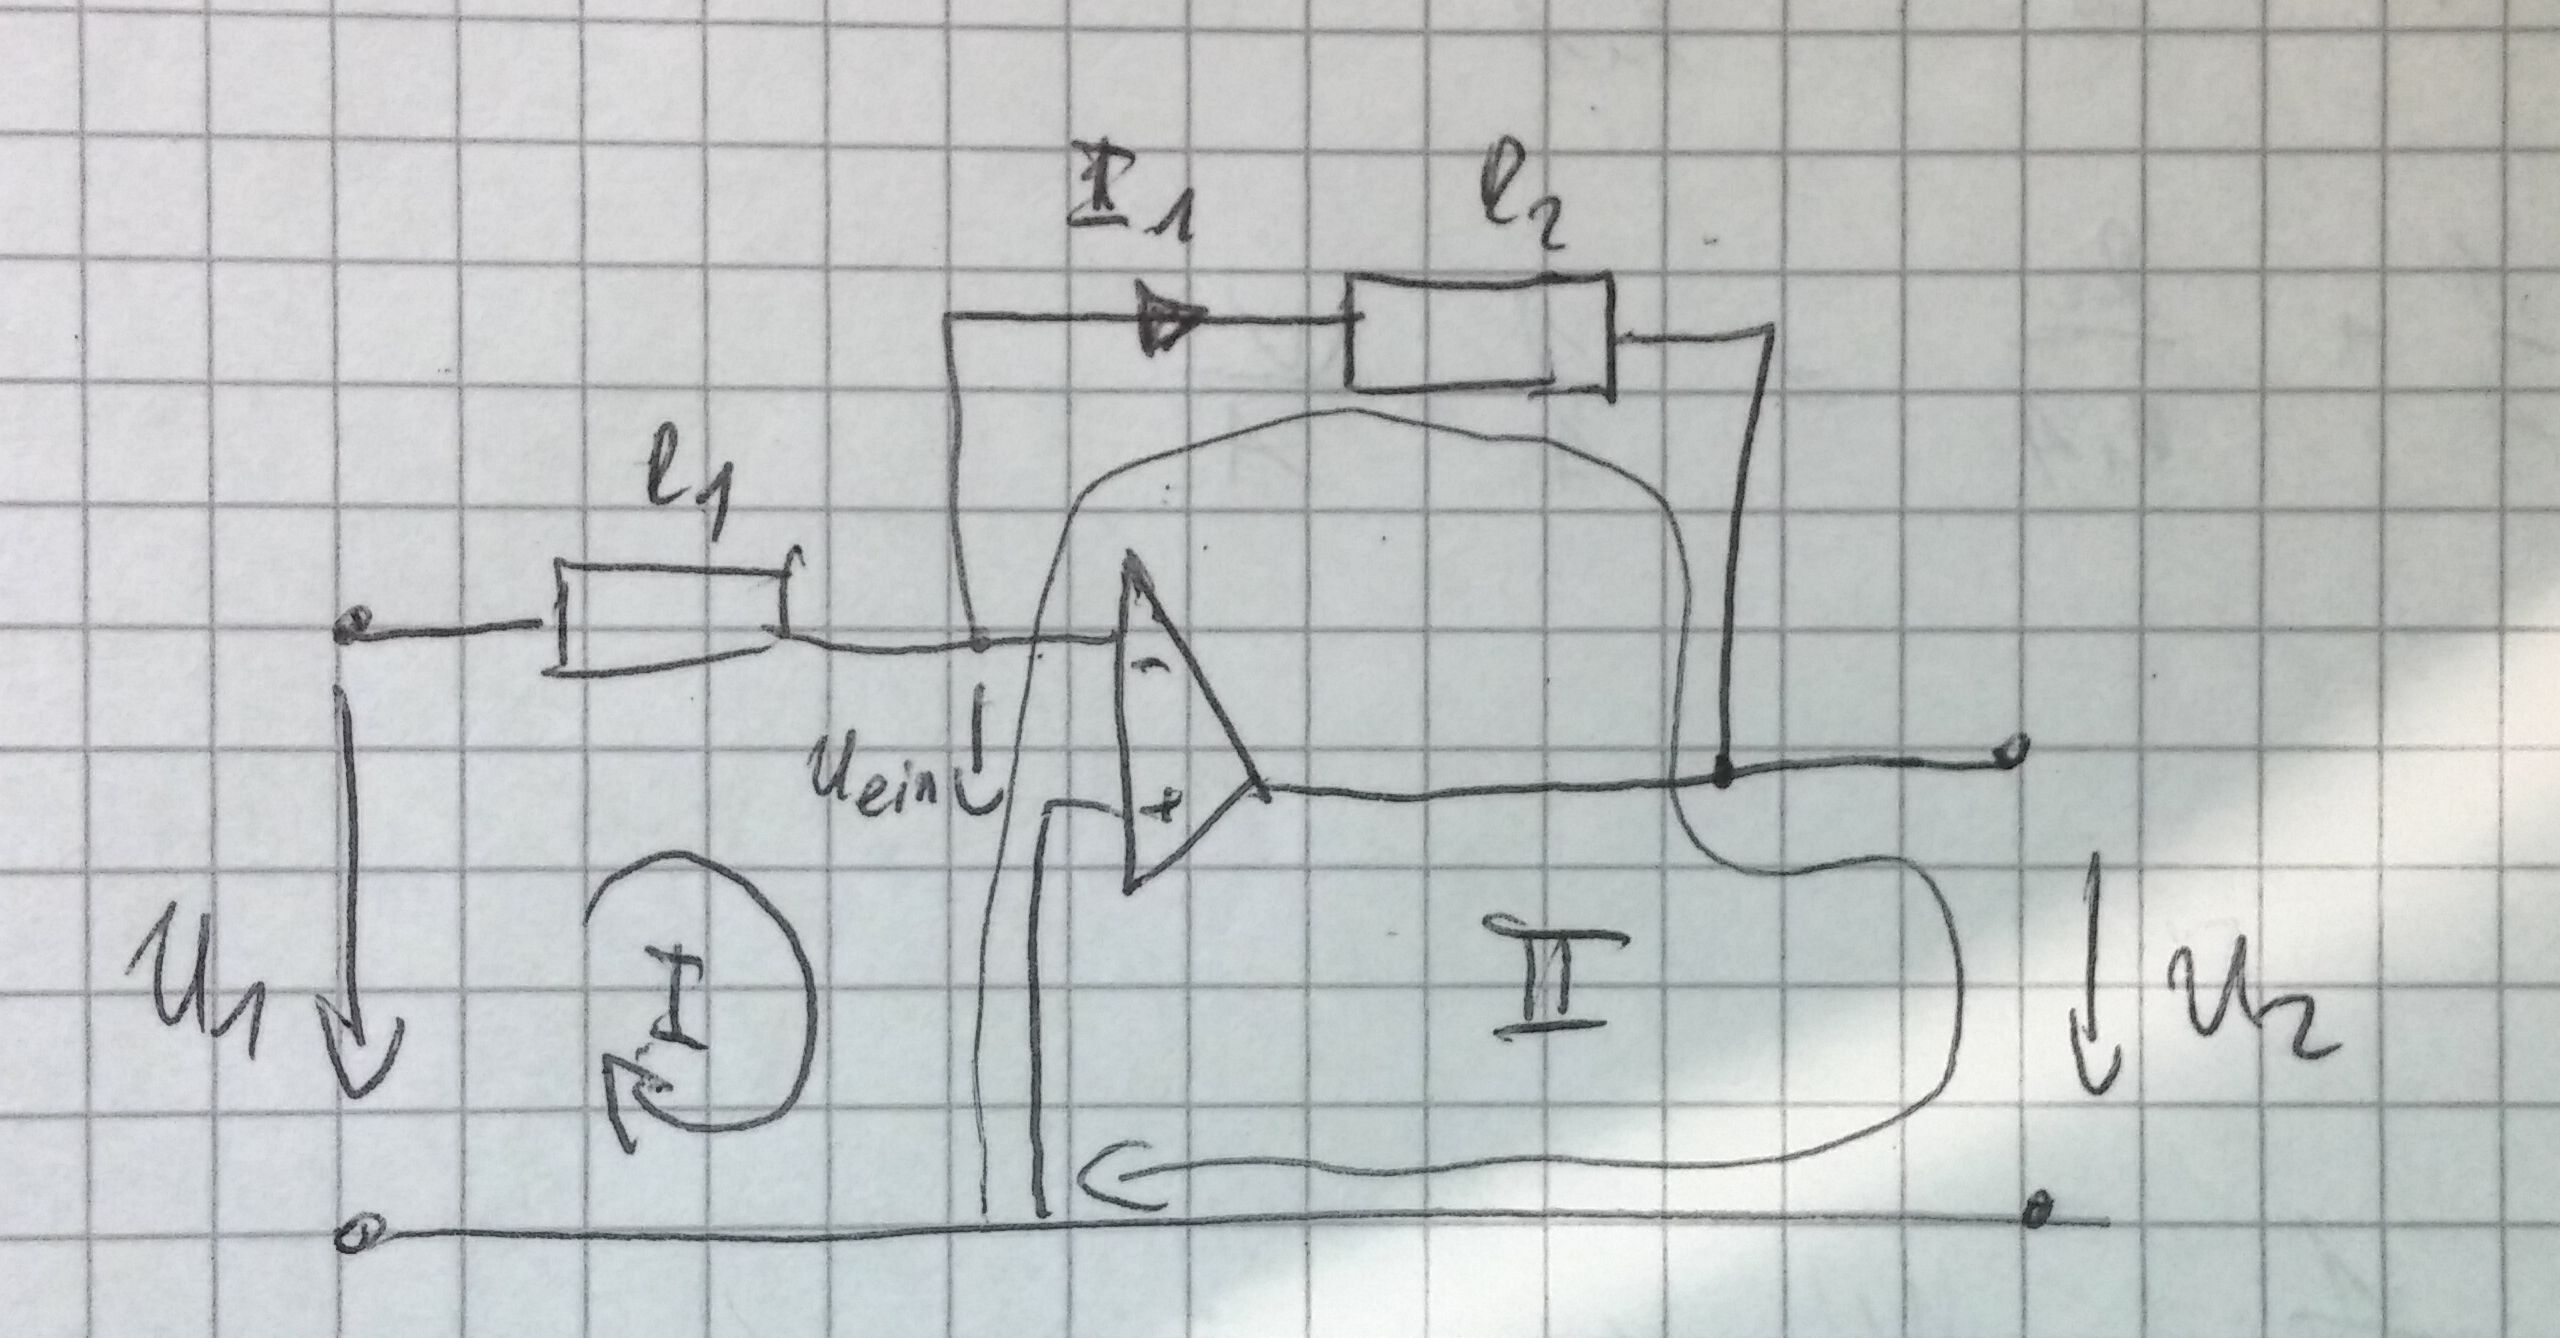 I1
R2
R1
-
Uein
+
U1
I
II
U2